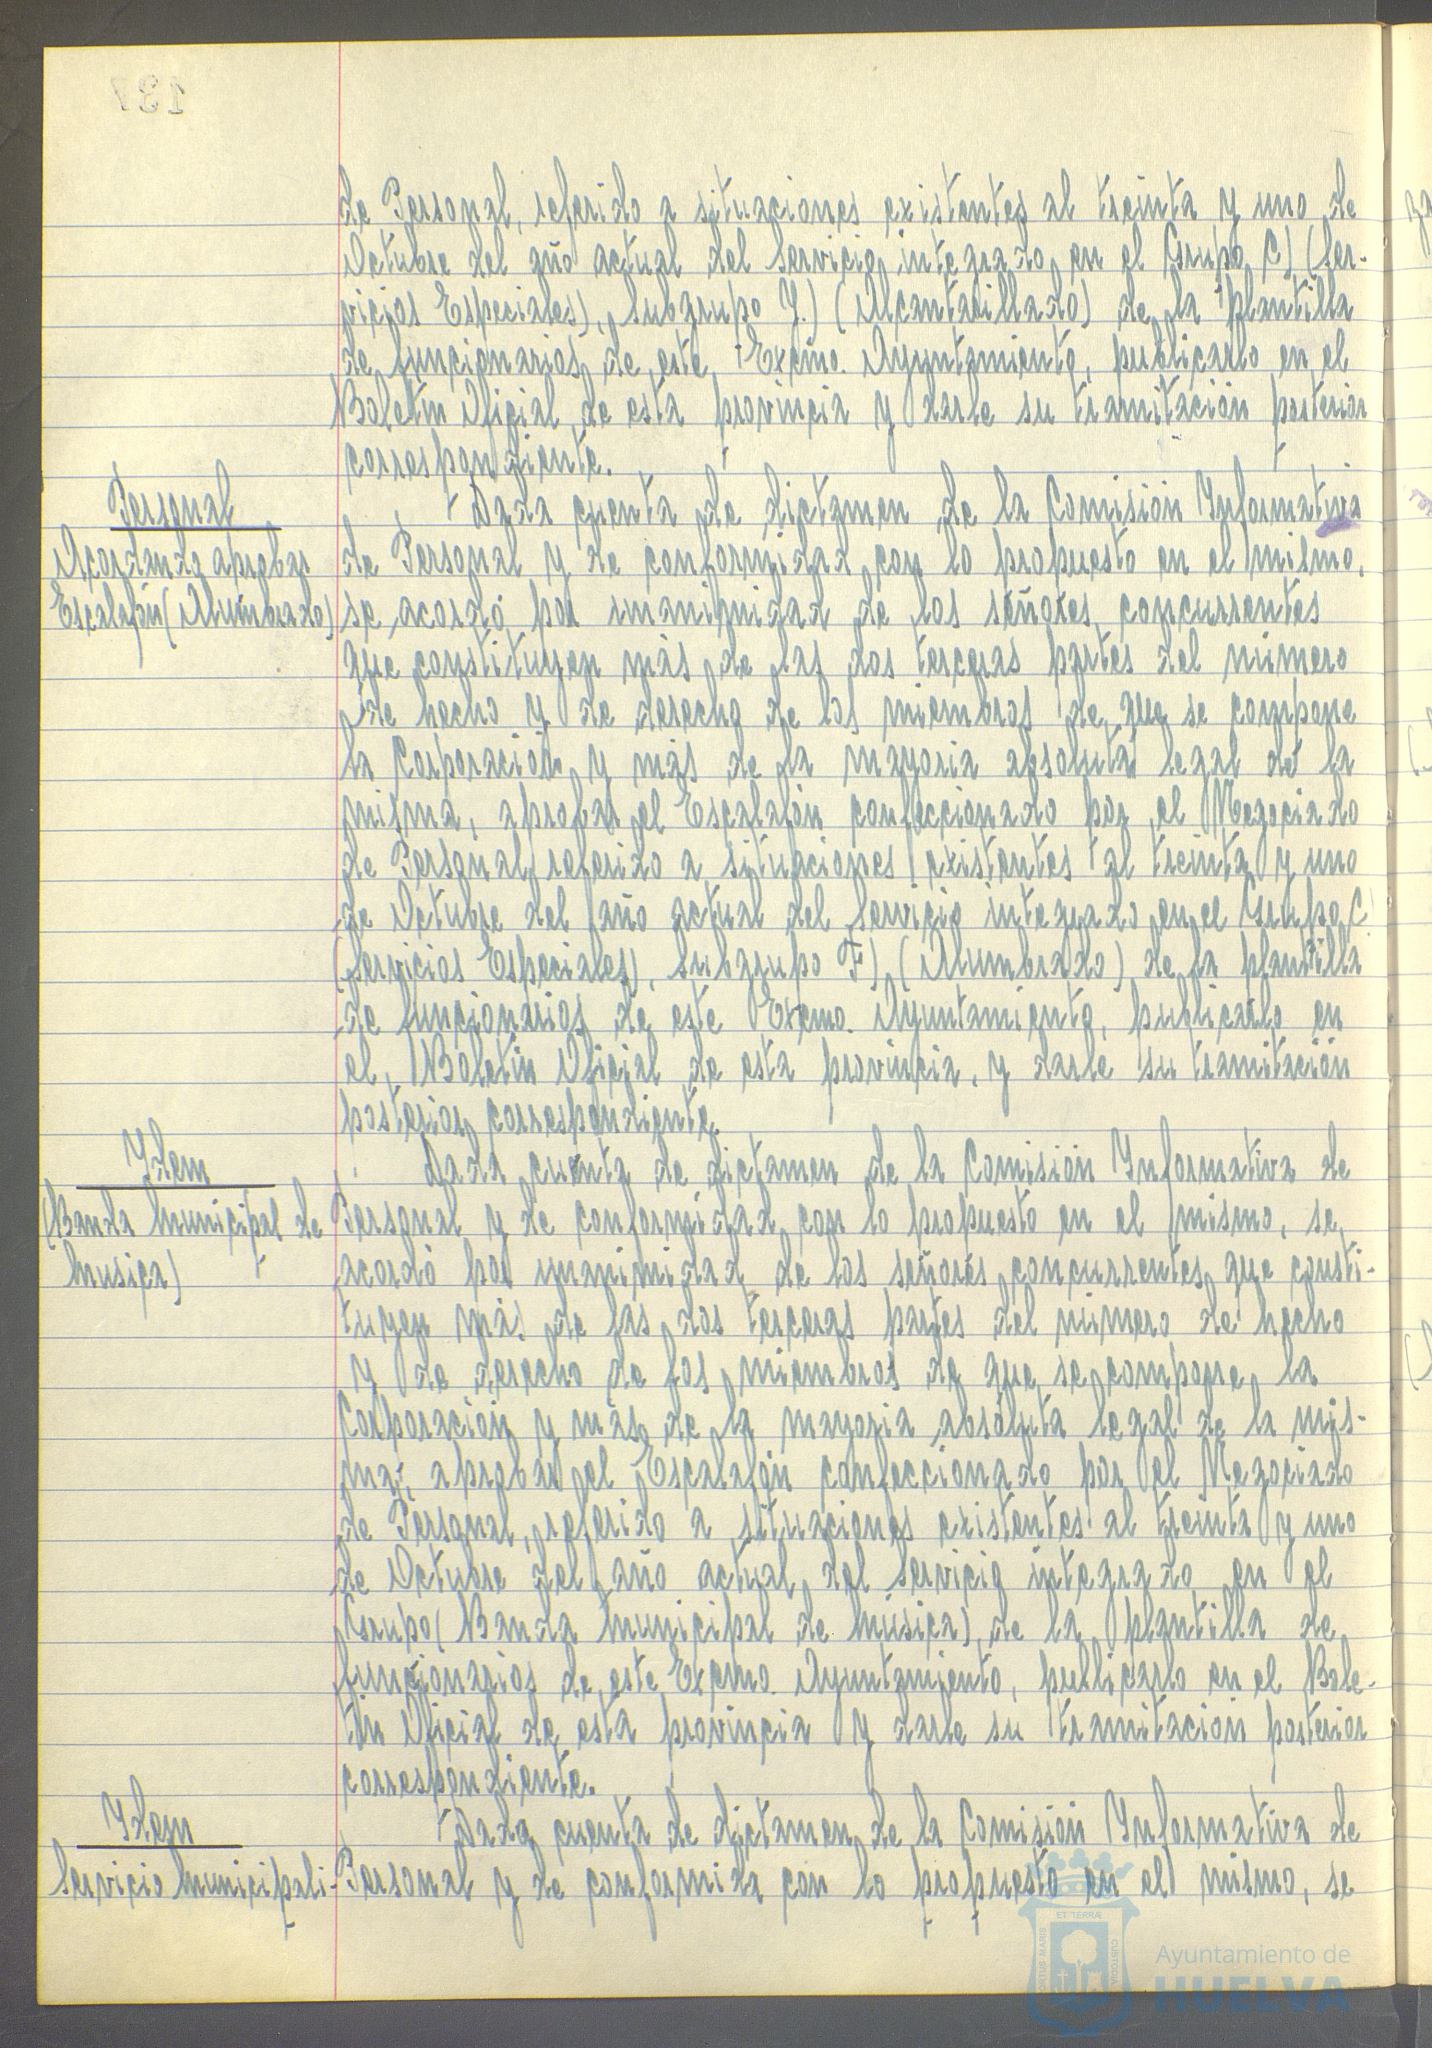 de Personal, referido a situaciones existentes al treinta y uno de
Octubre del año actual del servicio integrado en el Grupo C) (Ser-
vicios Especiales), Subgrupo Y.) (Alcantarillado) de la plantilla
de funcionarios de este Excmo. Ayuntamiento, publicarlo en el
Boletín Oficial de esta provincia y darle su tramitación posterior
correspondiente.
Personal
Acordando aprobar
Escalafón (Alumbrado)
Dada cuenta de dictamen de la Comisión Informativa
de Personal y de conformidad con lo propuesto en el mismo,
se acordó por unanimidad de los señores concurrentes
que constituyen más de las dos terceras partes del número
de hecho y de derecho de los miembros de que se compone
la Corporación y más de la mayoria absoluta legal de la
misma, aprobar el Escalafón confeccionado por el Negociado
de Personal referido a situaciones existentes al treinta y uno
de Octubre del año actual del servicio integrado en el Grupo C)
(Servicios Especiales), Subgrupo F) (Alumbrado) de la plantilla
de funcionarios de este Excmo. Ayuntamiento, publicarlo en
el Boletín Oficial de esta provincia, y darle su tramitación
posterior correspondiente.
Ydem
(Banda Municipal de
Musica)
Dada cuenta de dictamen de la Comisión Informativa de
Personal y de conformidad con lo propuesto en el mismo, se
acordó por unanimidad de los señores concurrentes que consti-
tuyen más de las dos terceras partes del número de hecho
y de derecho de los miembros de que se compone la
Corporación y más de la mayoria absoluta legal de la mis-
ma, aprobar el Escalafón confeccionado por el Negociado
de Personal, referido a situaciones existentes al treinta y uno
de Octubre del año actual del servicio integrado en el
Grupo (Banda Municipal de Música) de la plantilla de
funcionarios de este Excmo. Ayuntamiento, publicarlo en el Bole-
tín Oficial de esta provincia y darle su tramitación posterior
correspondiente.
Ydem
Servicio Municipali-
Dada cuenta de dictamen de la Comisión Informativa de
Personal y de conformida con lo propuesto en el mismo, se
Ayuntamiento de
HUELVA